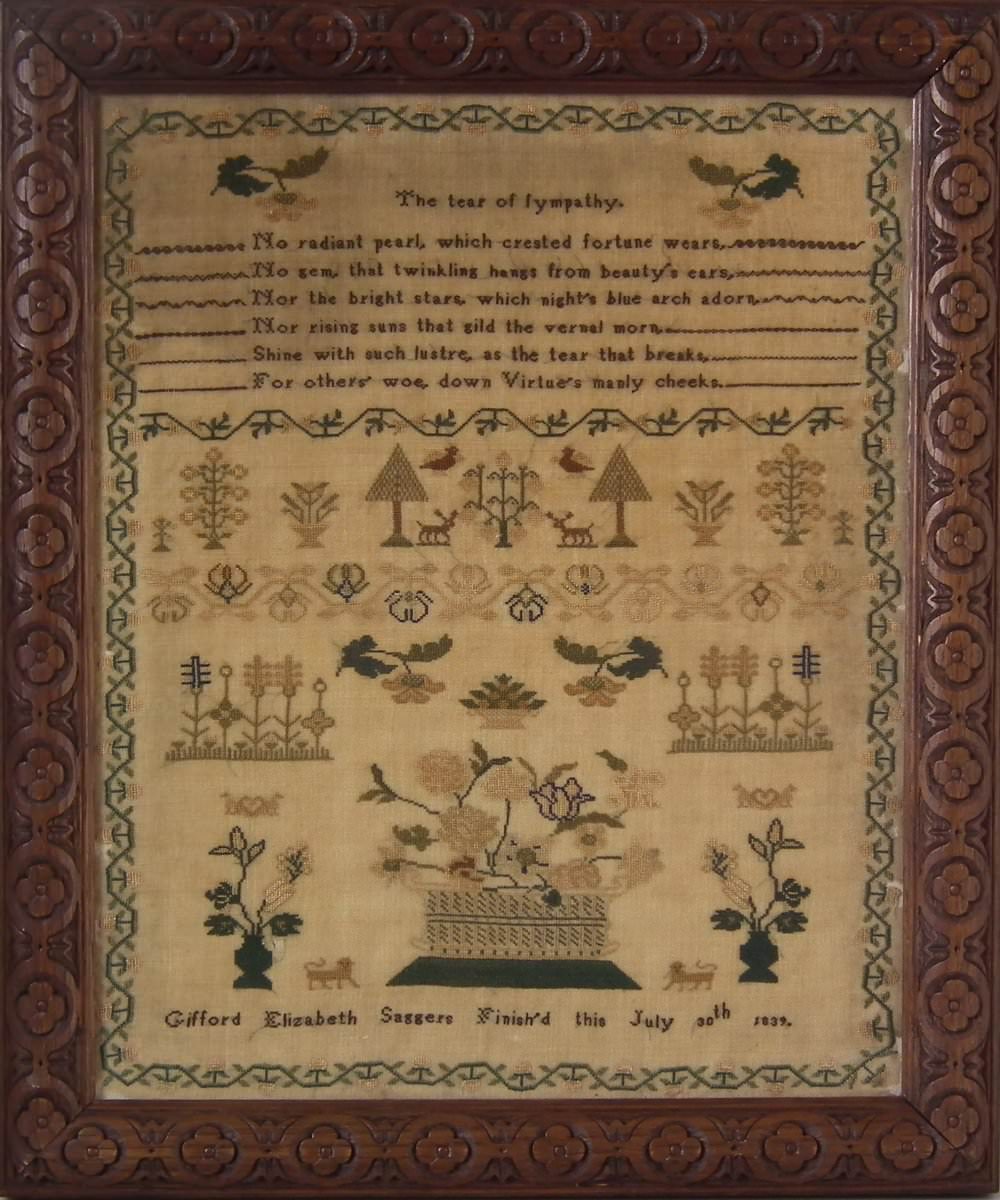 The tear of ſympathy.
No radiant pearl, which crested fortune wears,
No gem, that twinkling hangs from beauty's ears,
Nor the bright stars, which night's blue arch adorn,
Nor rising suns that gild the vernal morn,
Shine with such lustre, as the tear that breaks,
For others' woe, down Virtue's manly cheeks.
Gifford Elizabeth Saggers Finish'd this July 30th 1839.